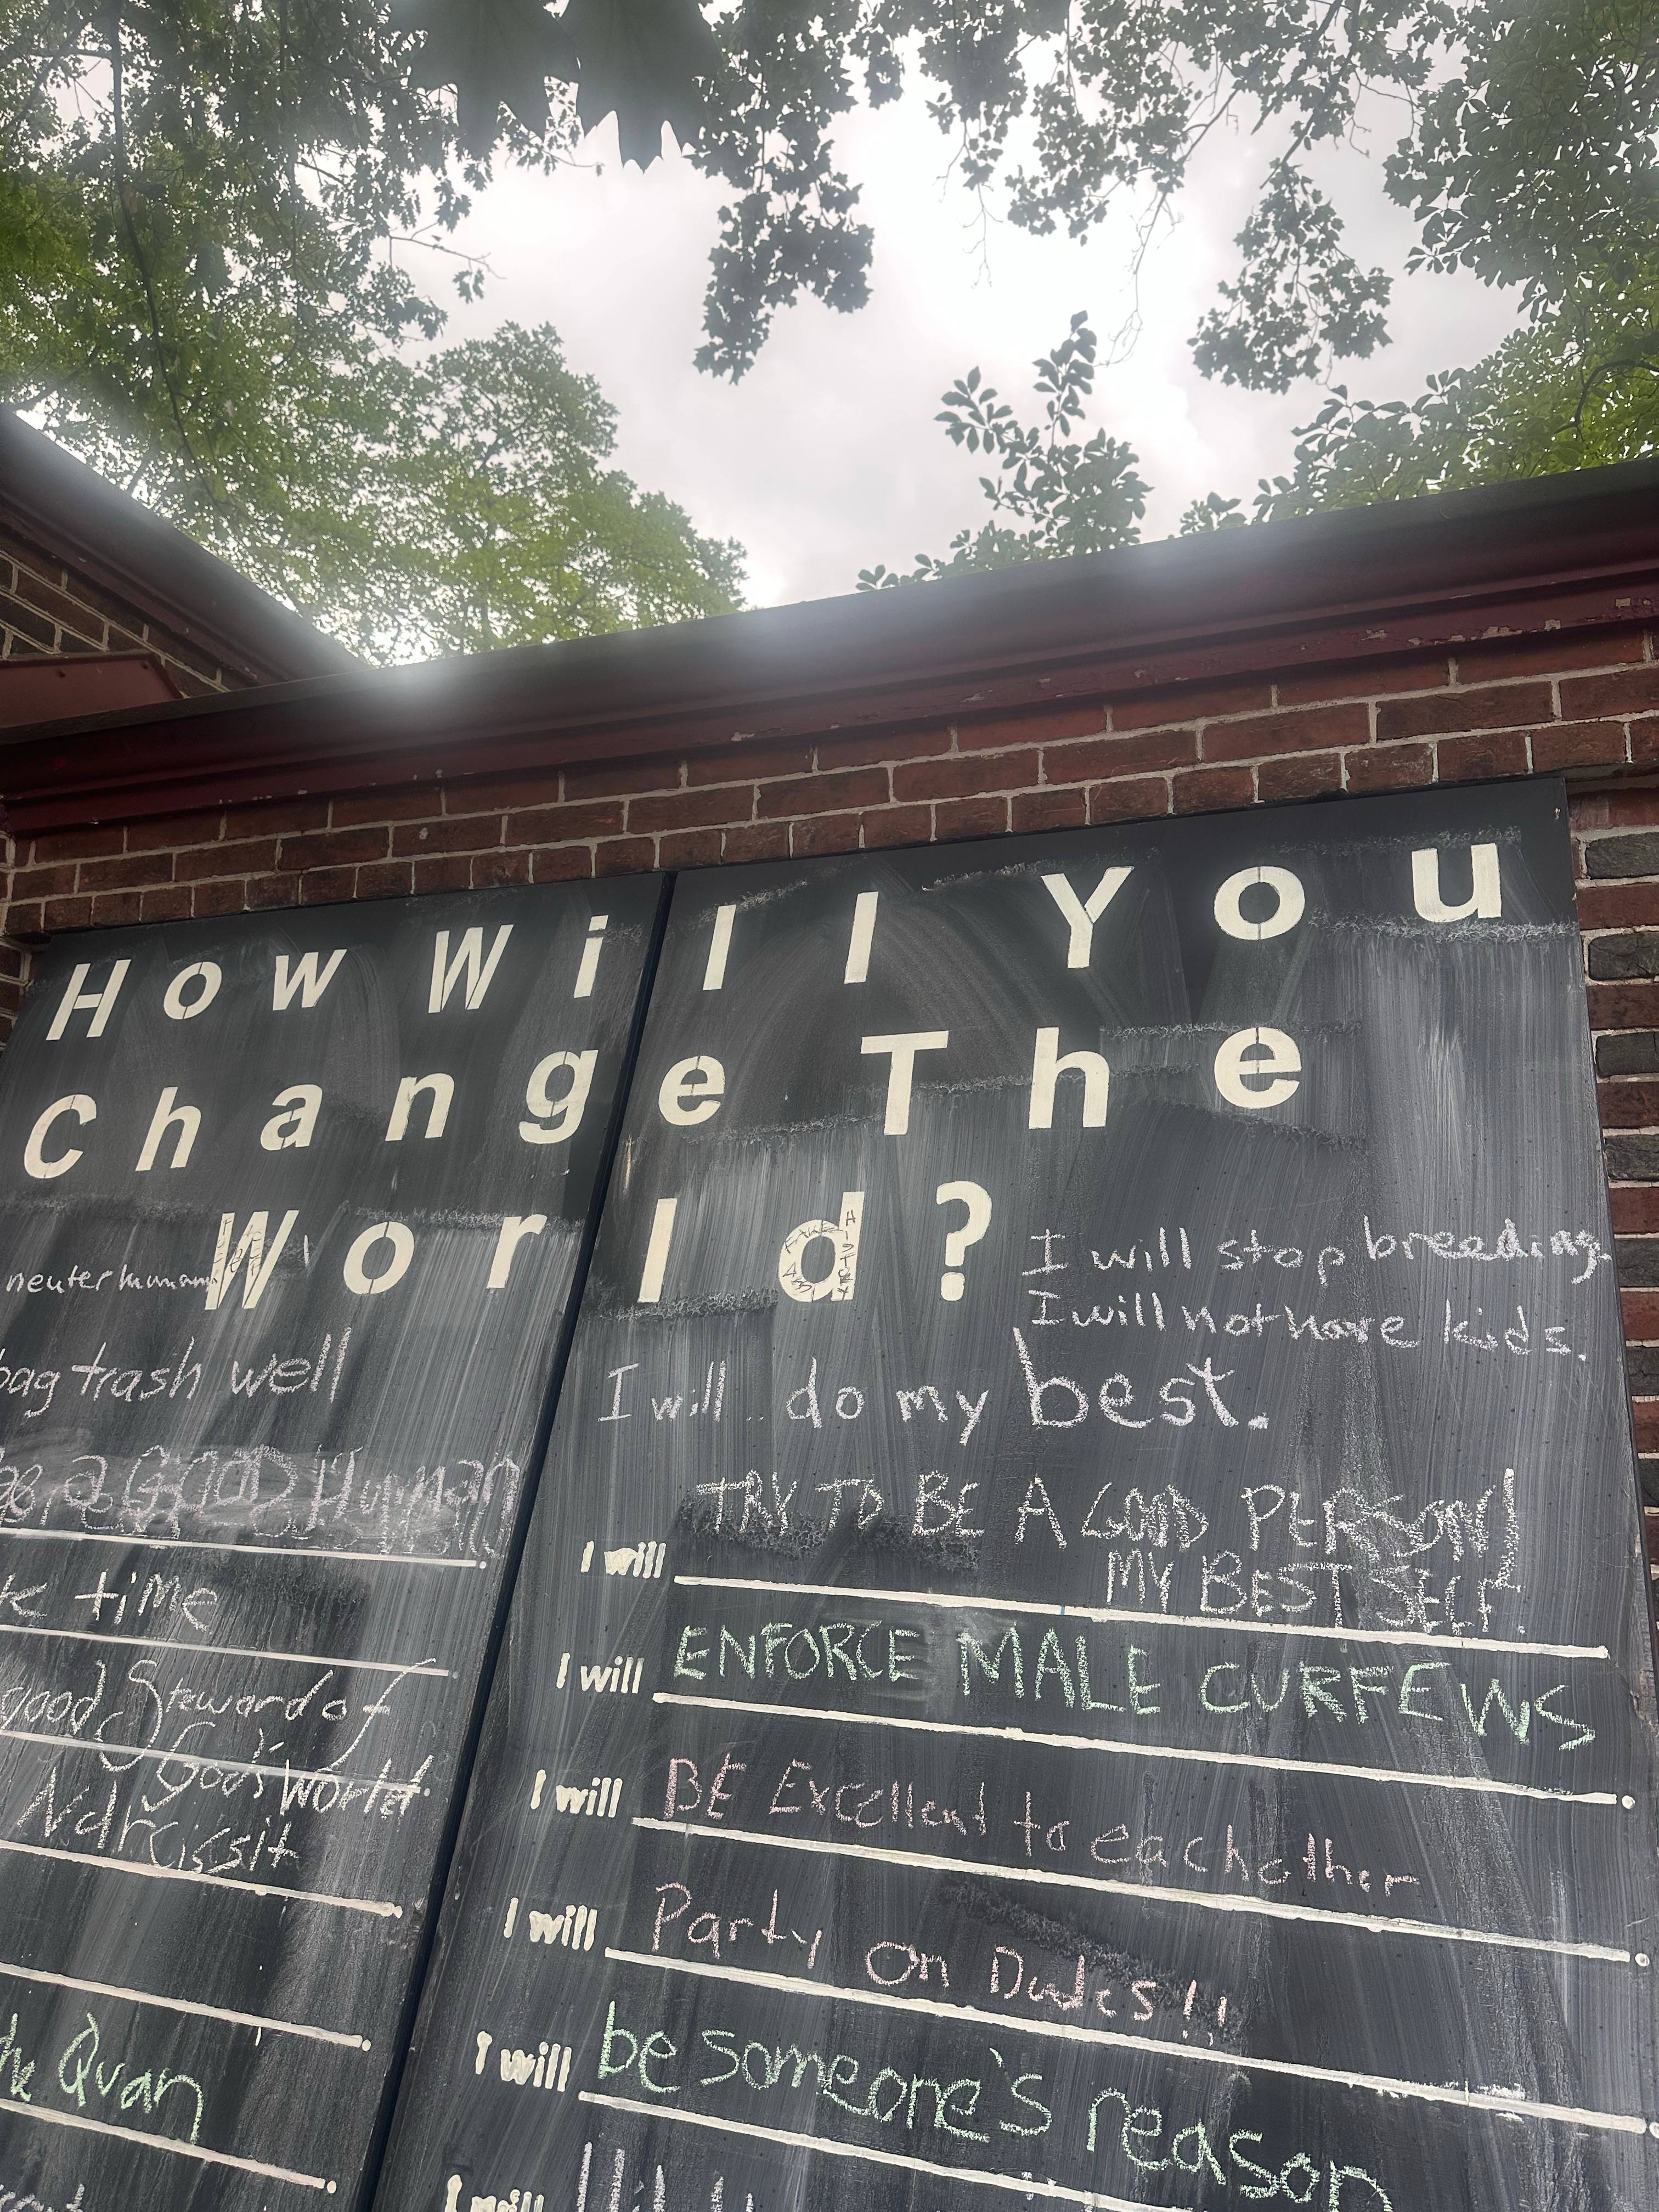 How Will You
Change The
World?
neuter humans
bag trash well
be a GOOD Human
time
good Steward of
God's World.
Narcissit
the Quan
I will stop breeding.
I will not have kids.
I will do my best.
I will TRY TO BE A GOOD PERSON/
MY BEST SELF.
I will ENFORCE MALE CURFEWS
I will BE Excellent to each other
I will Party on Dudes!!
I will be someone's reason
I will